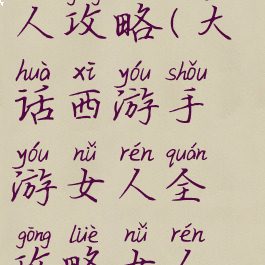 人攻略(大
huà xī yóu shǒu
话西游手
yóu nǚ rén quán
游女人全
gōng lüè nǚ rén
攻略女人